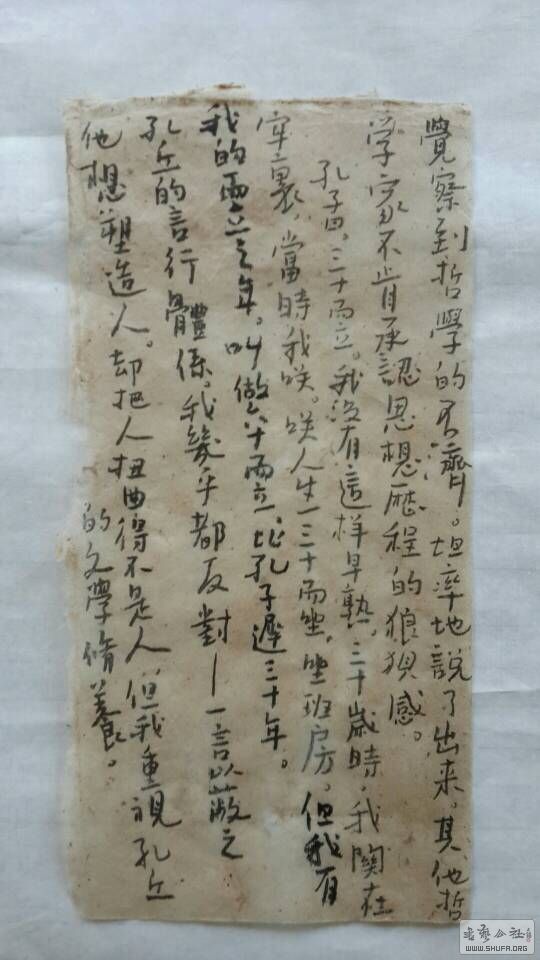 覺察到哲學的不濟。坦率地說了出来。其他哲
学家不肯承認思想歷程的狼狽感。
孔子曰。三十而立。我没有這样早熟。三十歲時。我関在
牢裏。當時我咲。咲人生一三十而坐。坐班房。但我有
我的而立之年。叫做六十而立。比孔子遲三十年。
孔丘的言行體係。我幾乎都反對—一言以蔽之
他想塑造人。却把人扭曲得不是人。但我重視孔丘
的文學脩養。
书艺公社
WWW.SHUFA.ORG